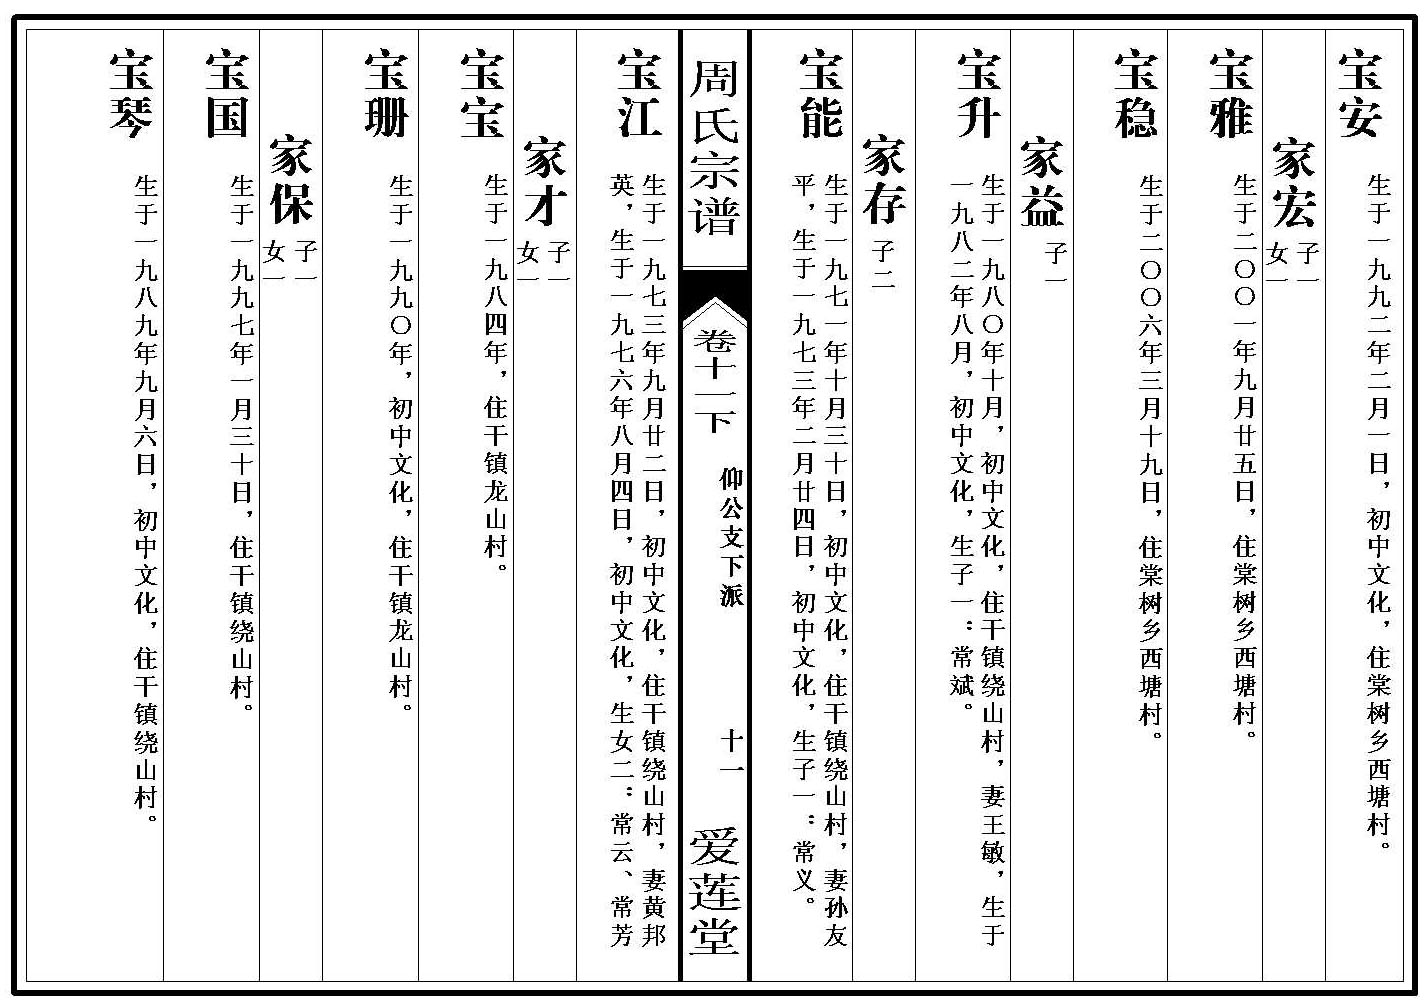 宝安
生于一九九二年二月一日，初中文化，住棠树乡西塘村。
家宏
子一
女一
宝雅
生于二〇〇一年九月廿五日，住棠树乡西塘村。
宝稳
生于二〇〇六年三月十九日，住棠树乡西塘村。
家益
子一
宝升
生于一九八〇年十月，初中文化，住干镇绕山村，妻王敏，生于
一九八二年八月，初中文化，生子一：常斌。
家存
子二
宝能
生于一九七一年十月三十日，初中文化，住干镇绕山村，妻孙友
平，生于一九七三年二月廿四日，初中文化，生子一：常义。
周氏宗谱
卷十二下
仰公支下派
十一
爱莲堂
宝江
生于一九七三年九月廿二日，初中文化，住干镇绕山村，妻黄邦
英，生于一九七六年八月四日，初中文化，生女二：常云、常芳
家才
子一
女一
宝宝
生于一九八四年，住干镇龙山村。
宝珊
生于一九九〇年，初中文化，住干镇龙山村。
家保
子一
女一
宝国
生于一九九七年一月三十日，住干镇绕山村。
宝琴
生于一九八九年九月六日，初中文化，住干镇绕山村。